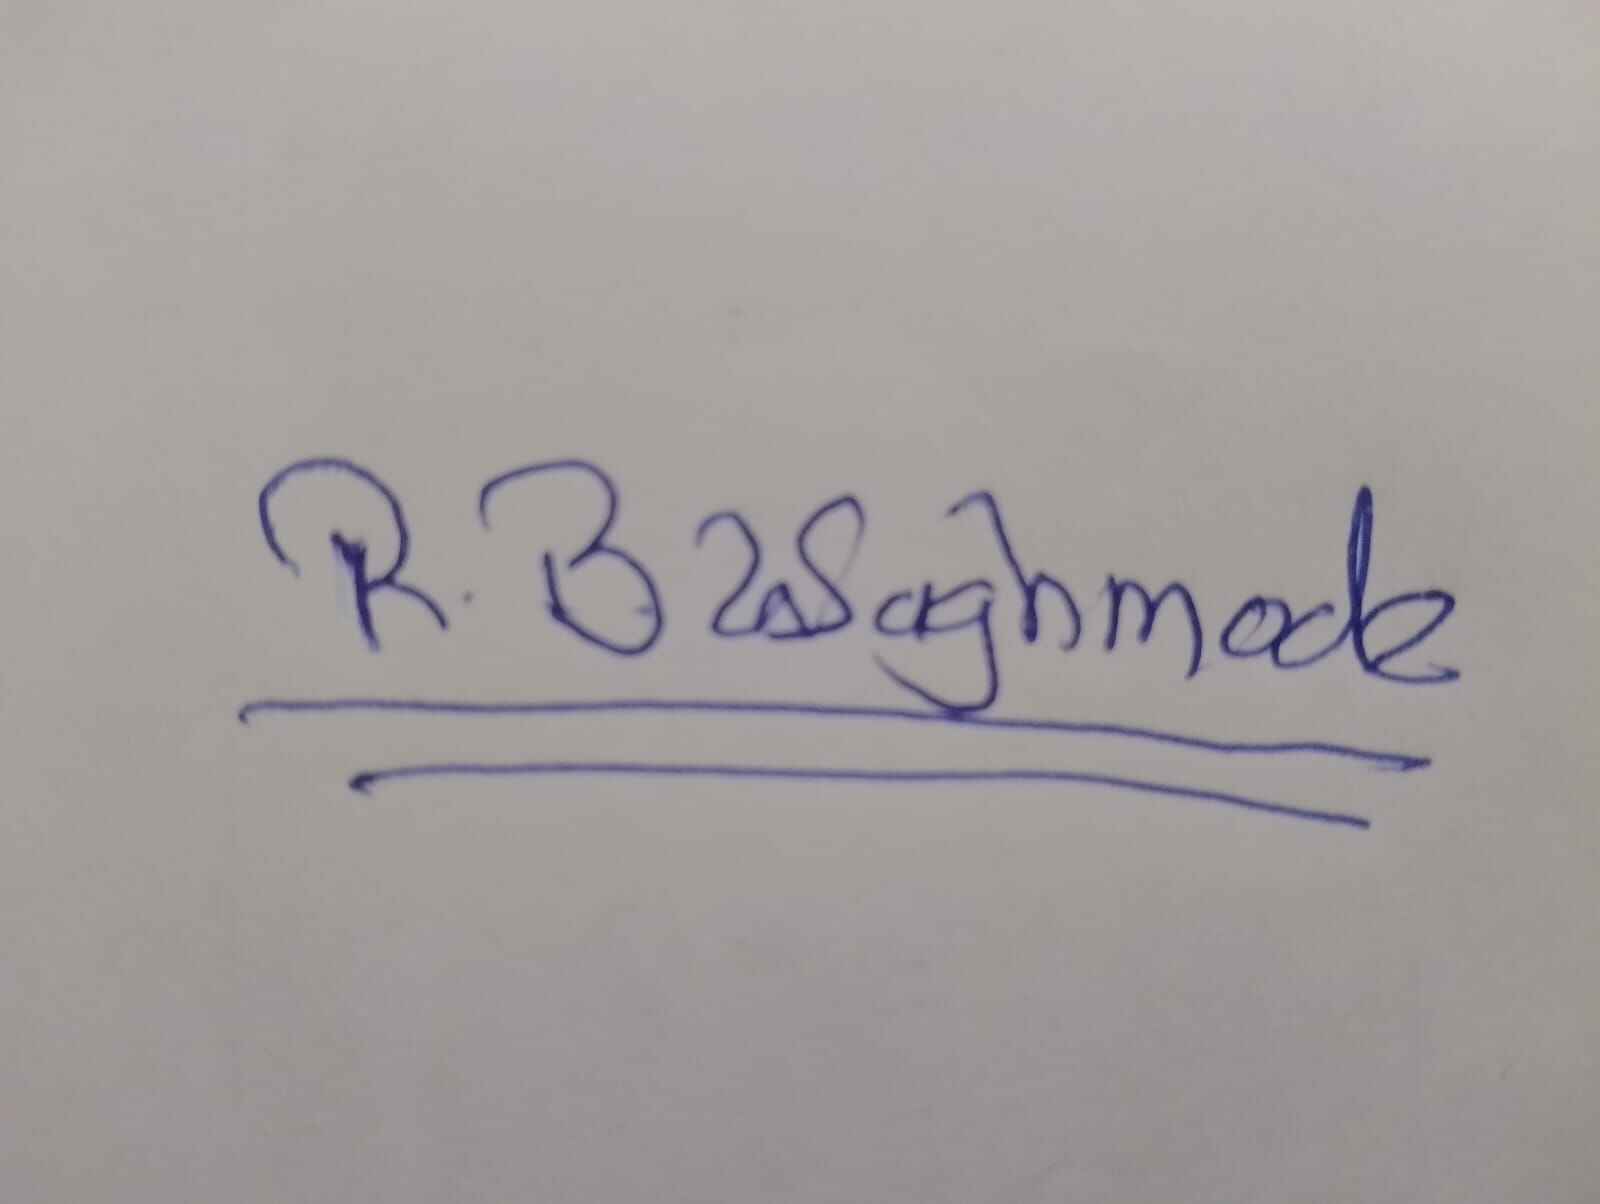 R. B Waghmode